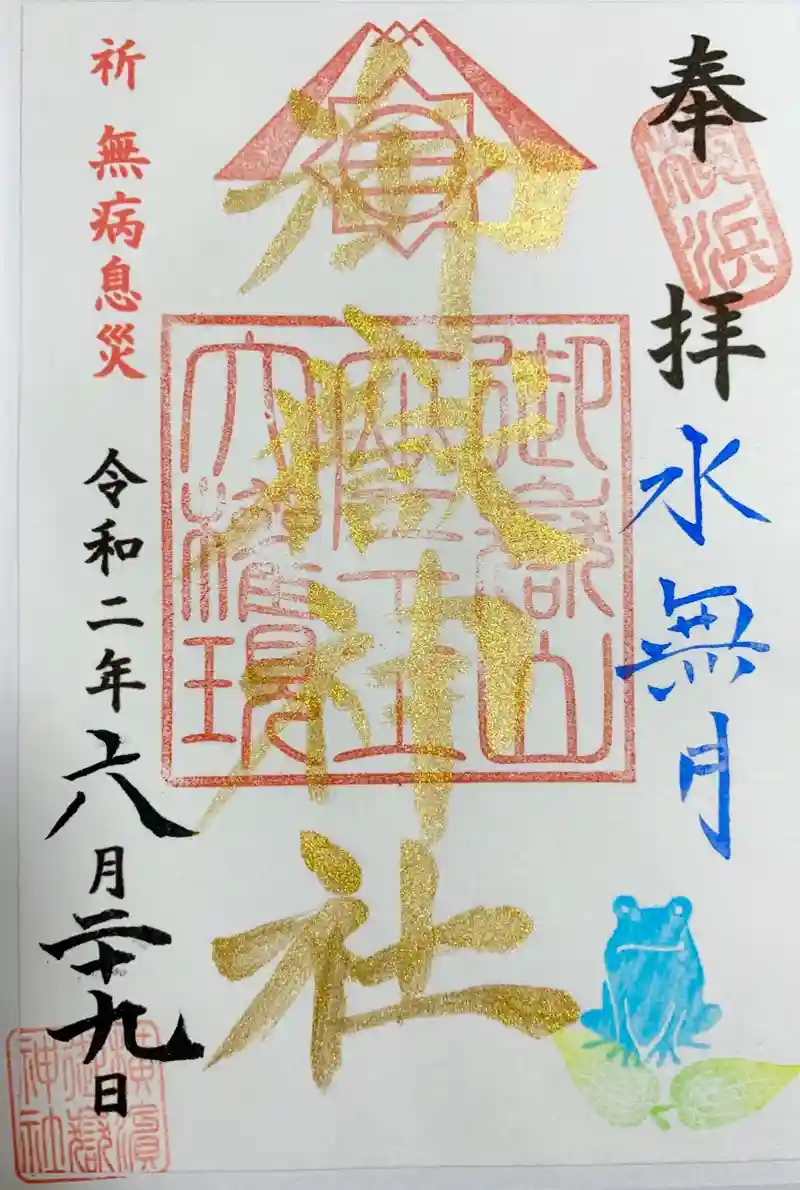 奉拝
横浜
水無月
御嶽神社
御嶽山
座王
大権現
祈 無病息災
令和二年六月二十九日
横濱
御嶽
神社